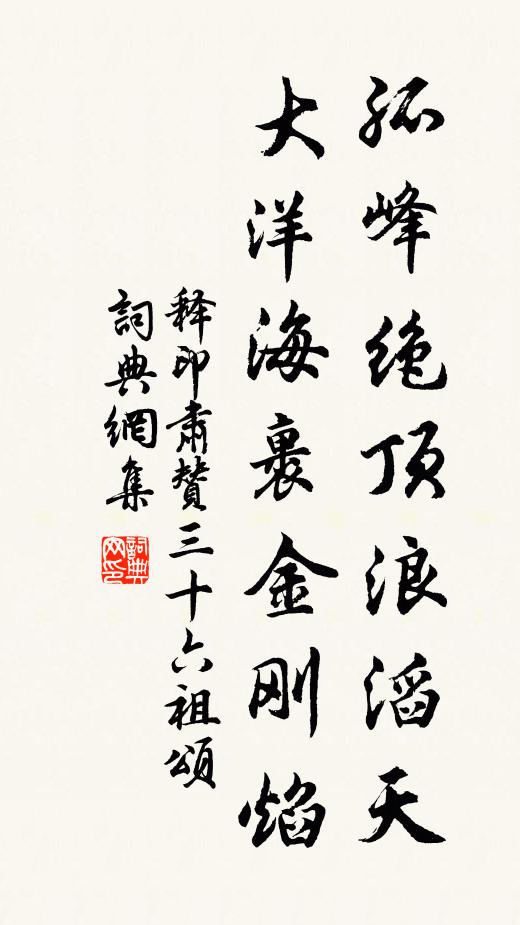 孤峰绝顶浪滔天
大洋海裹金刚焰
释印肃贊三十六祖頌
詞典網集
詞典网印